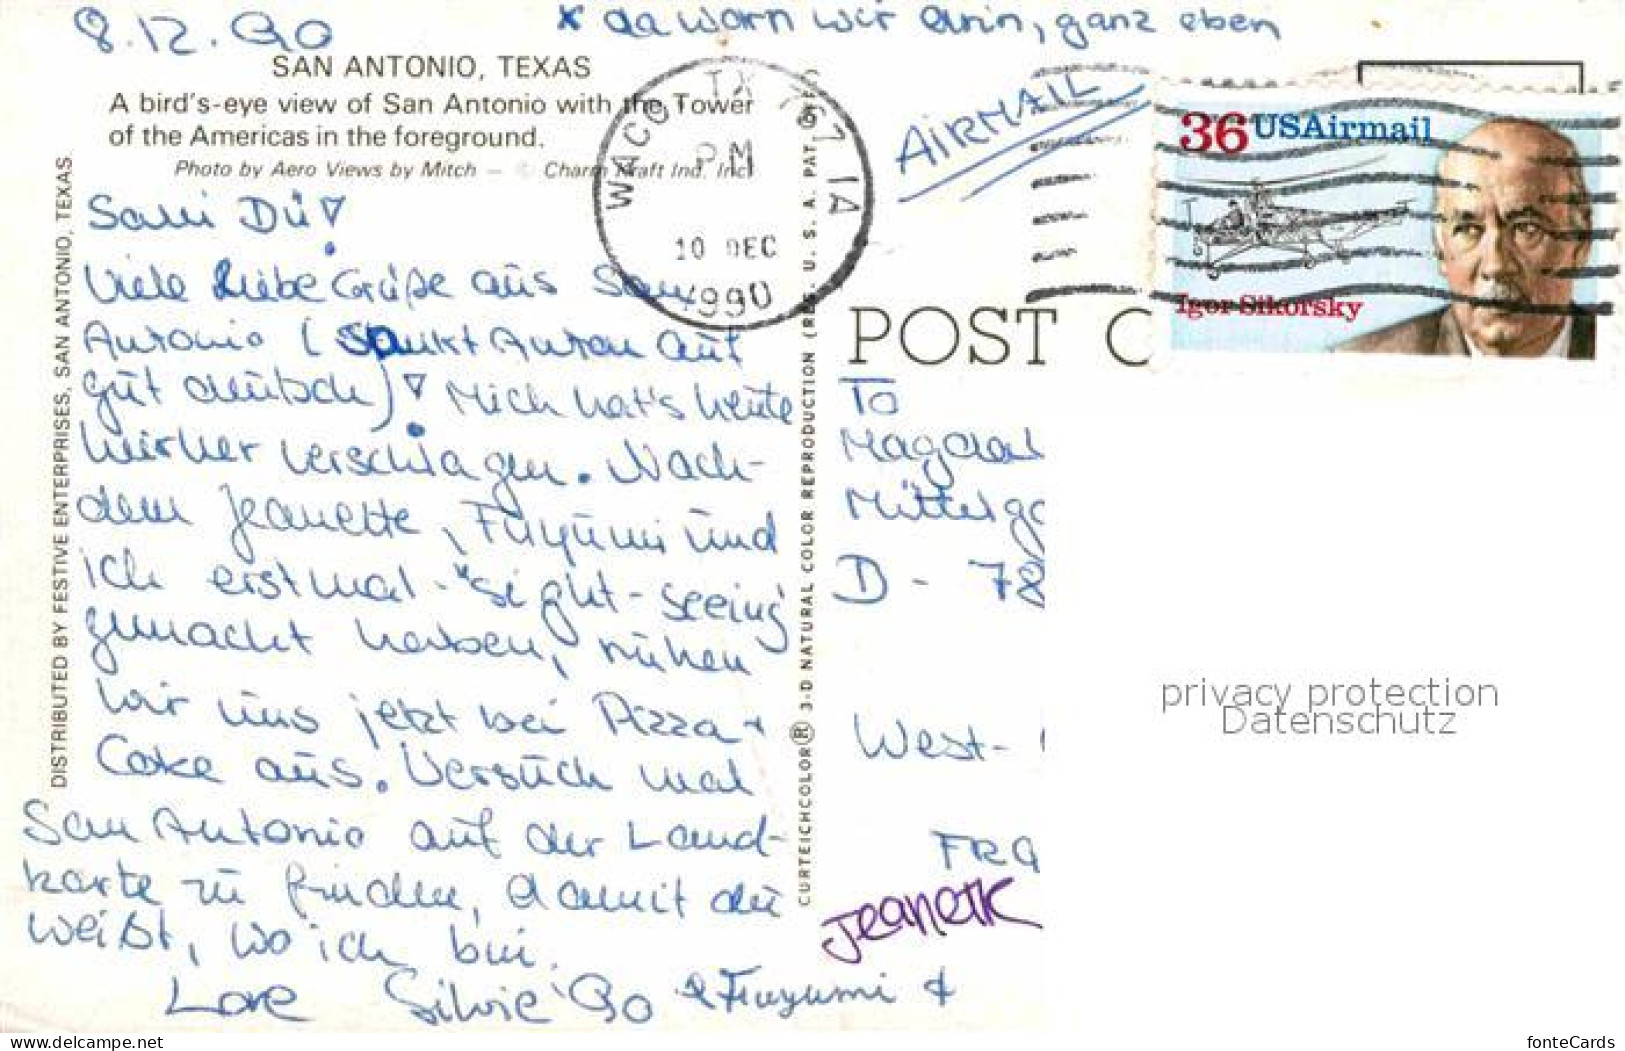 8.12.90
* da warn wir drin, ganz eben
SAN ANTONIO, TEXAS
A bird's-eye view of San Antonio with the Tower
of the Americas in the foreground.
Photo by Aero Views by Mitch — © Charm Kraft Ind. Inc.
DISTRIBUTED BY FESTIVE ENTERPRISES, SAN ANTONIO, TEXAS.
Dü!
Viele liebe Grüße aus San
Antonio (Sankt Anton auf
gut deutsch)! Mich hat's heute
hierher verschlagen. Nach-
dem Jeanette, Fuyumi und
ich erstmal "sight-seeing"
gemacht haben, ruhen
wir uns jetzt bei Pizza +
Coke aus. Versuch mal
San Antonio auf der Land-
karte zu finden, damit du
weißt, wo ich bin.
Love Silvie '90 & Fuyumi &
Jeanette
CURTEICHCOLOR® 3-D NATURAL COLOR REPRODUCTION (REG. U. S. A. PAT. OFF.)
WACO TX 767 1A
PM
10 DEC
1990
AIRMAIL
36 USAirmail
Igor Sikorsky
POST C
To
Magdal
Mittelga
D - 78
West-
FRG
privacy protection
Datenschutz
www.delcampe.net
fonteCards